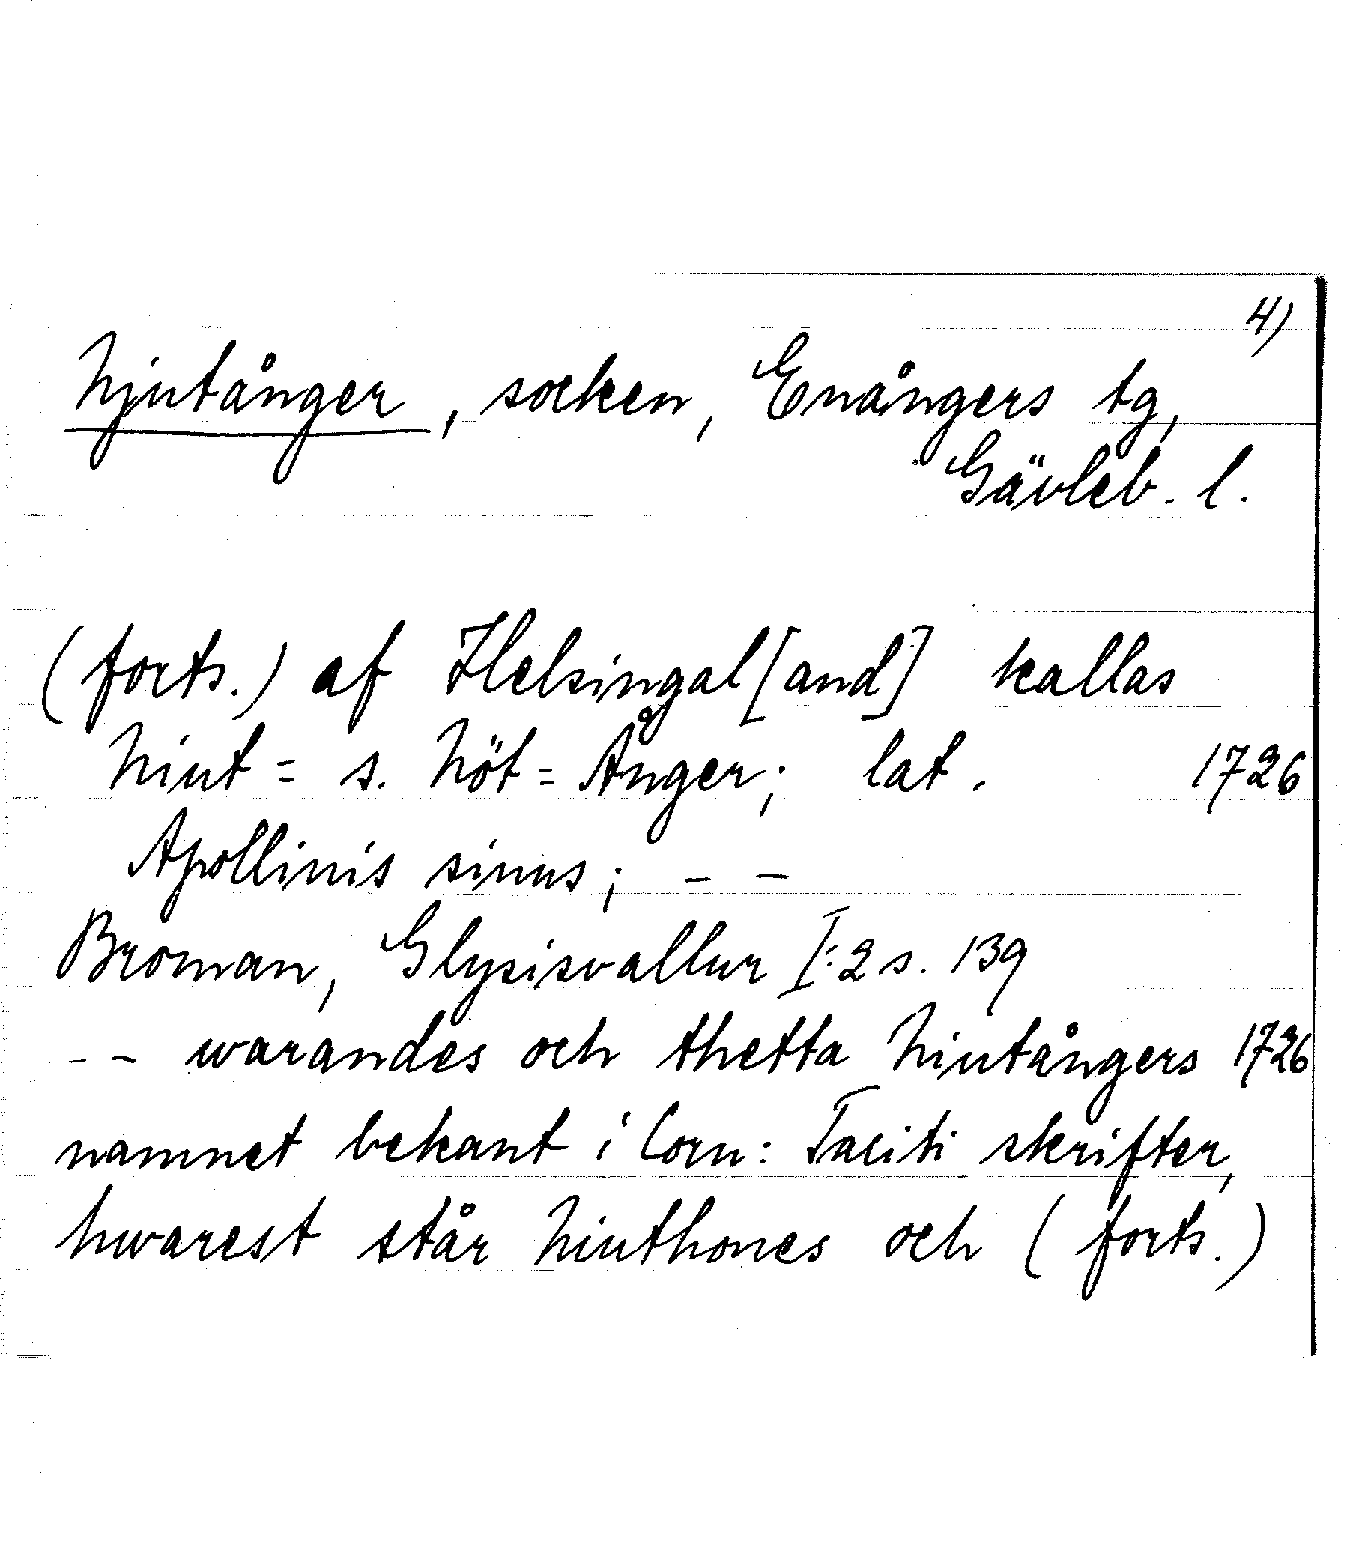 4)
Njutånger, socken, Enångers tg,
Gävleb. l.
(forts.) af Helsingal[and] kallas
Niut = s. Nöt = Ånger; lat. 1726
Apollinis sinus; - -
Broman, Glysisvallur I:2 s. 139
- - warandes och thetta Niutångers 1726
namnet bekant i Corn: Taciti skrifter,
hwarest står Niuthones och (forts.)